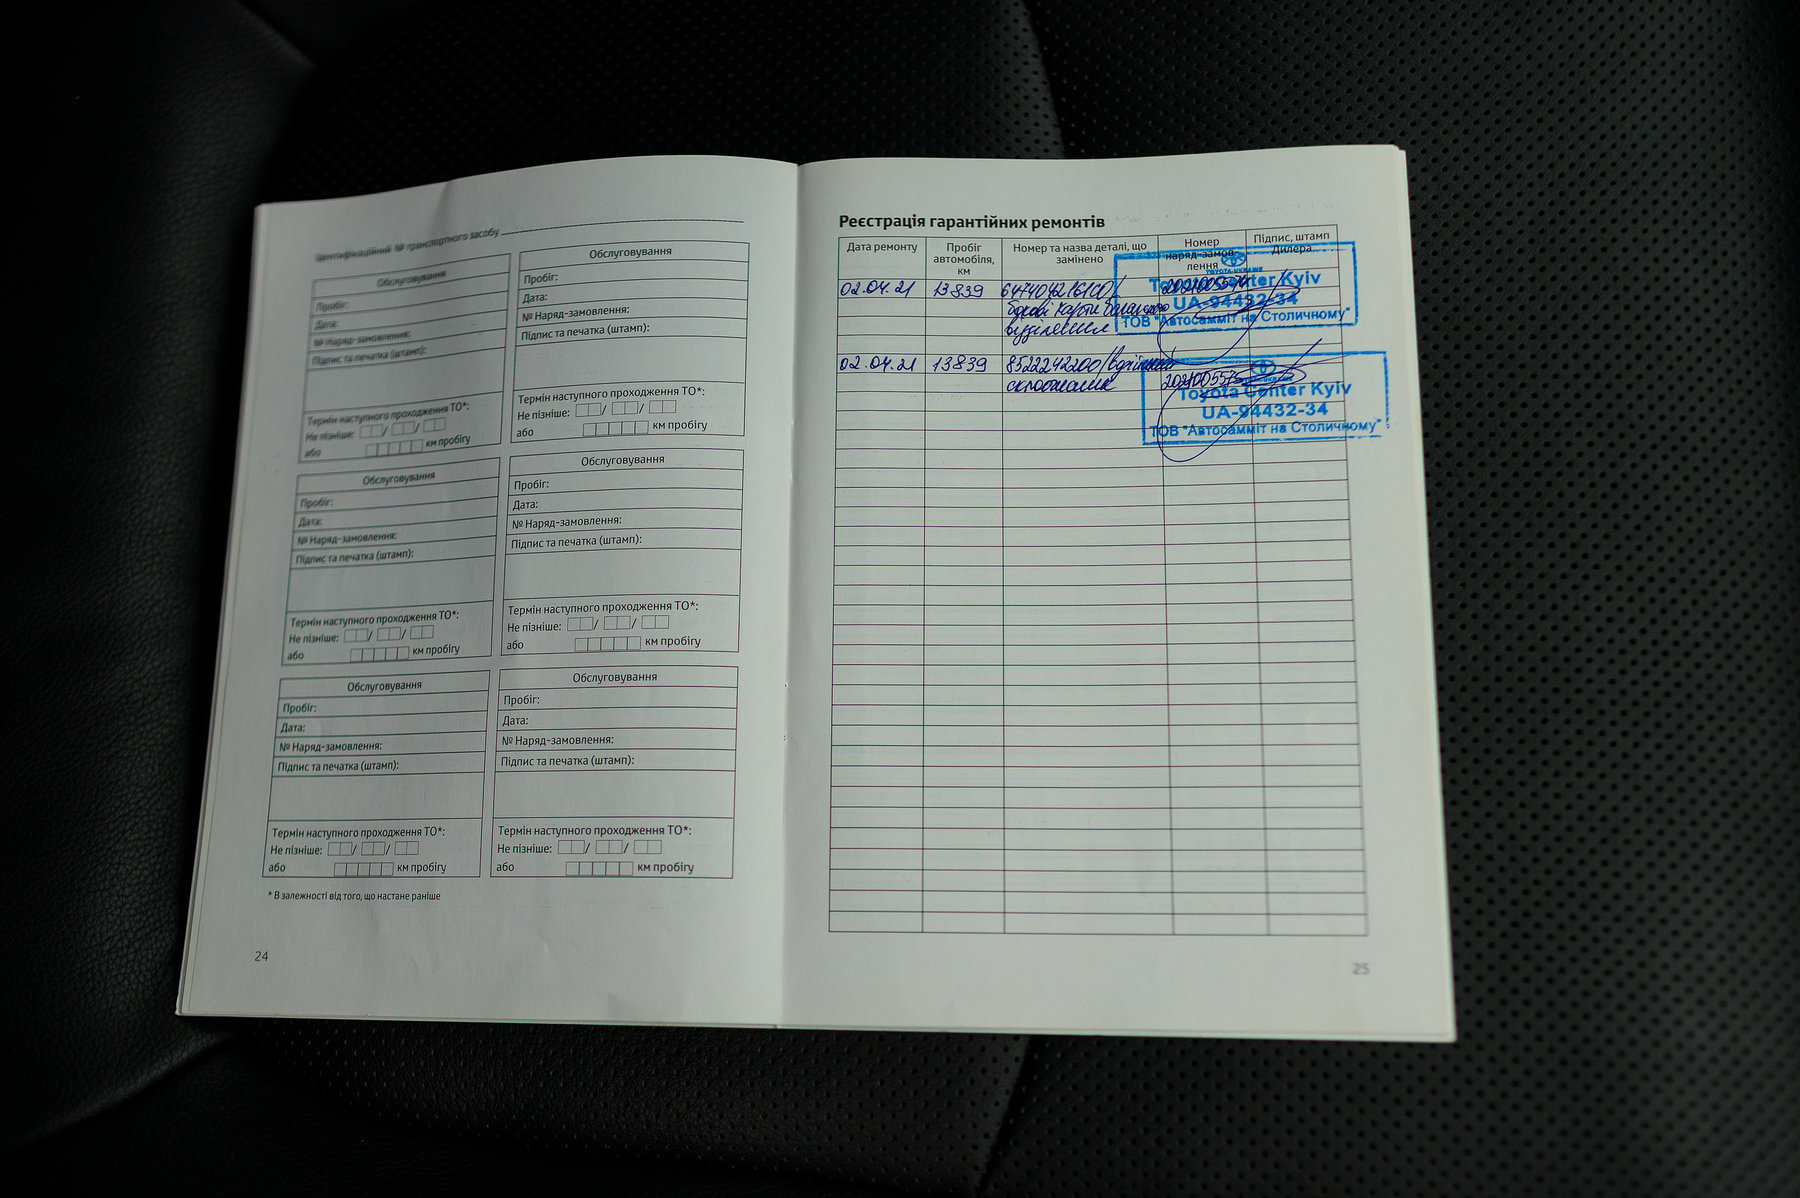 Ідентифікаційний № транспортного засобу
Обслуговування
Пробіг:
Дата:
№ Наряд-замовлення:
Підпис та печатка (штамп):
Термін наступного проходження ТО*:
Не пізніше: / /
або км пробігу
Обслуговування
Пробіг:
Дата:
№ Наряд-замовлення:
Підпис та печатка (штамп):
Термін наступного проходження ТО*:
Не пізніше: / /
або км пробігу
Обслуговування
Пробіг:
Дата:
№ Наряд-замовлення:
Підпис та печатка (штамп):
Термін наступного проходження ТО*:
Не пізніше: / /
або км пробігу
Обслуговування
Пробіг:
Дата:
№ Наряд-замовлення:
Підпис та печатка (штамп):
Термін наступного проходження ТО*:
Не пізніше: / /
або км пробігу
Обслуговування
Пробіг:
Дата:
№ Наряд-замовлення:
Підпис та печатка (штамп):
Термін наступного проходження ТО*:
Не пізніше: / /
або км пробігу
Обслуговування
Пробіг:
Дата:
№ Наряд-замовлення:
Підпис та печатка (штамп):
Термін наступного проходження ТО*:
Не пізніше: / /
або км пробігу
* В залежності від того, що настане раніше
24
Реєстрація гарантійних ремонтів
Дата ремонту
Пробіг
автомобіля,
км
Номер та назва деталі, що
замінено
Номер
наряд-замов-
лення
Підпис, штамп
Дилера
02.04.21 13839
TOYOTA-UKRAINE
Toyota Center Kyiv
UA-94432-34
ТОВ "Автосамміт на Столичному"
02.04.21 13839 8522242200/
Toyota Center Kyiv
UA-94432-34
ТОВ "Автосамміт на Столичному"
25